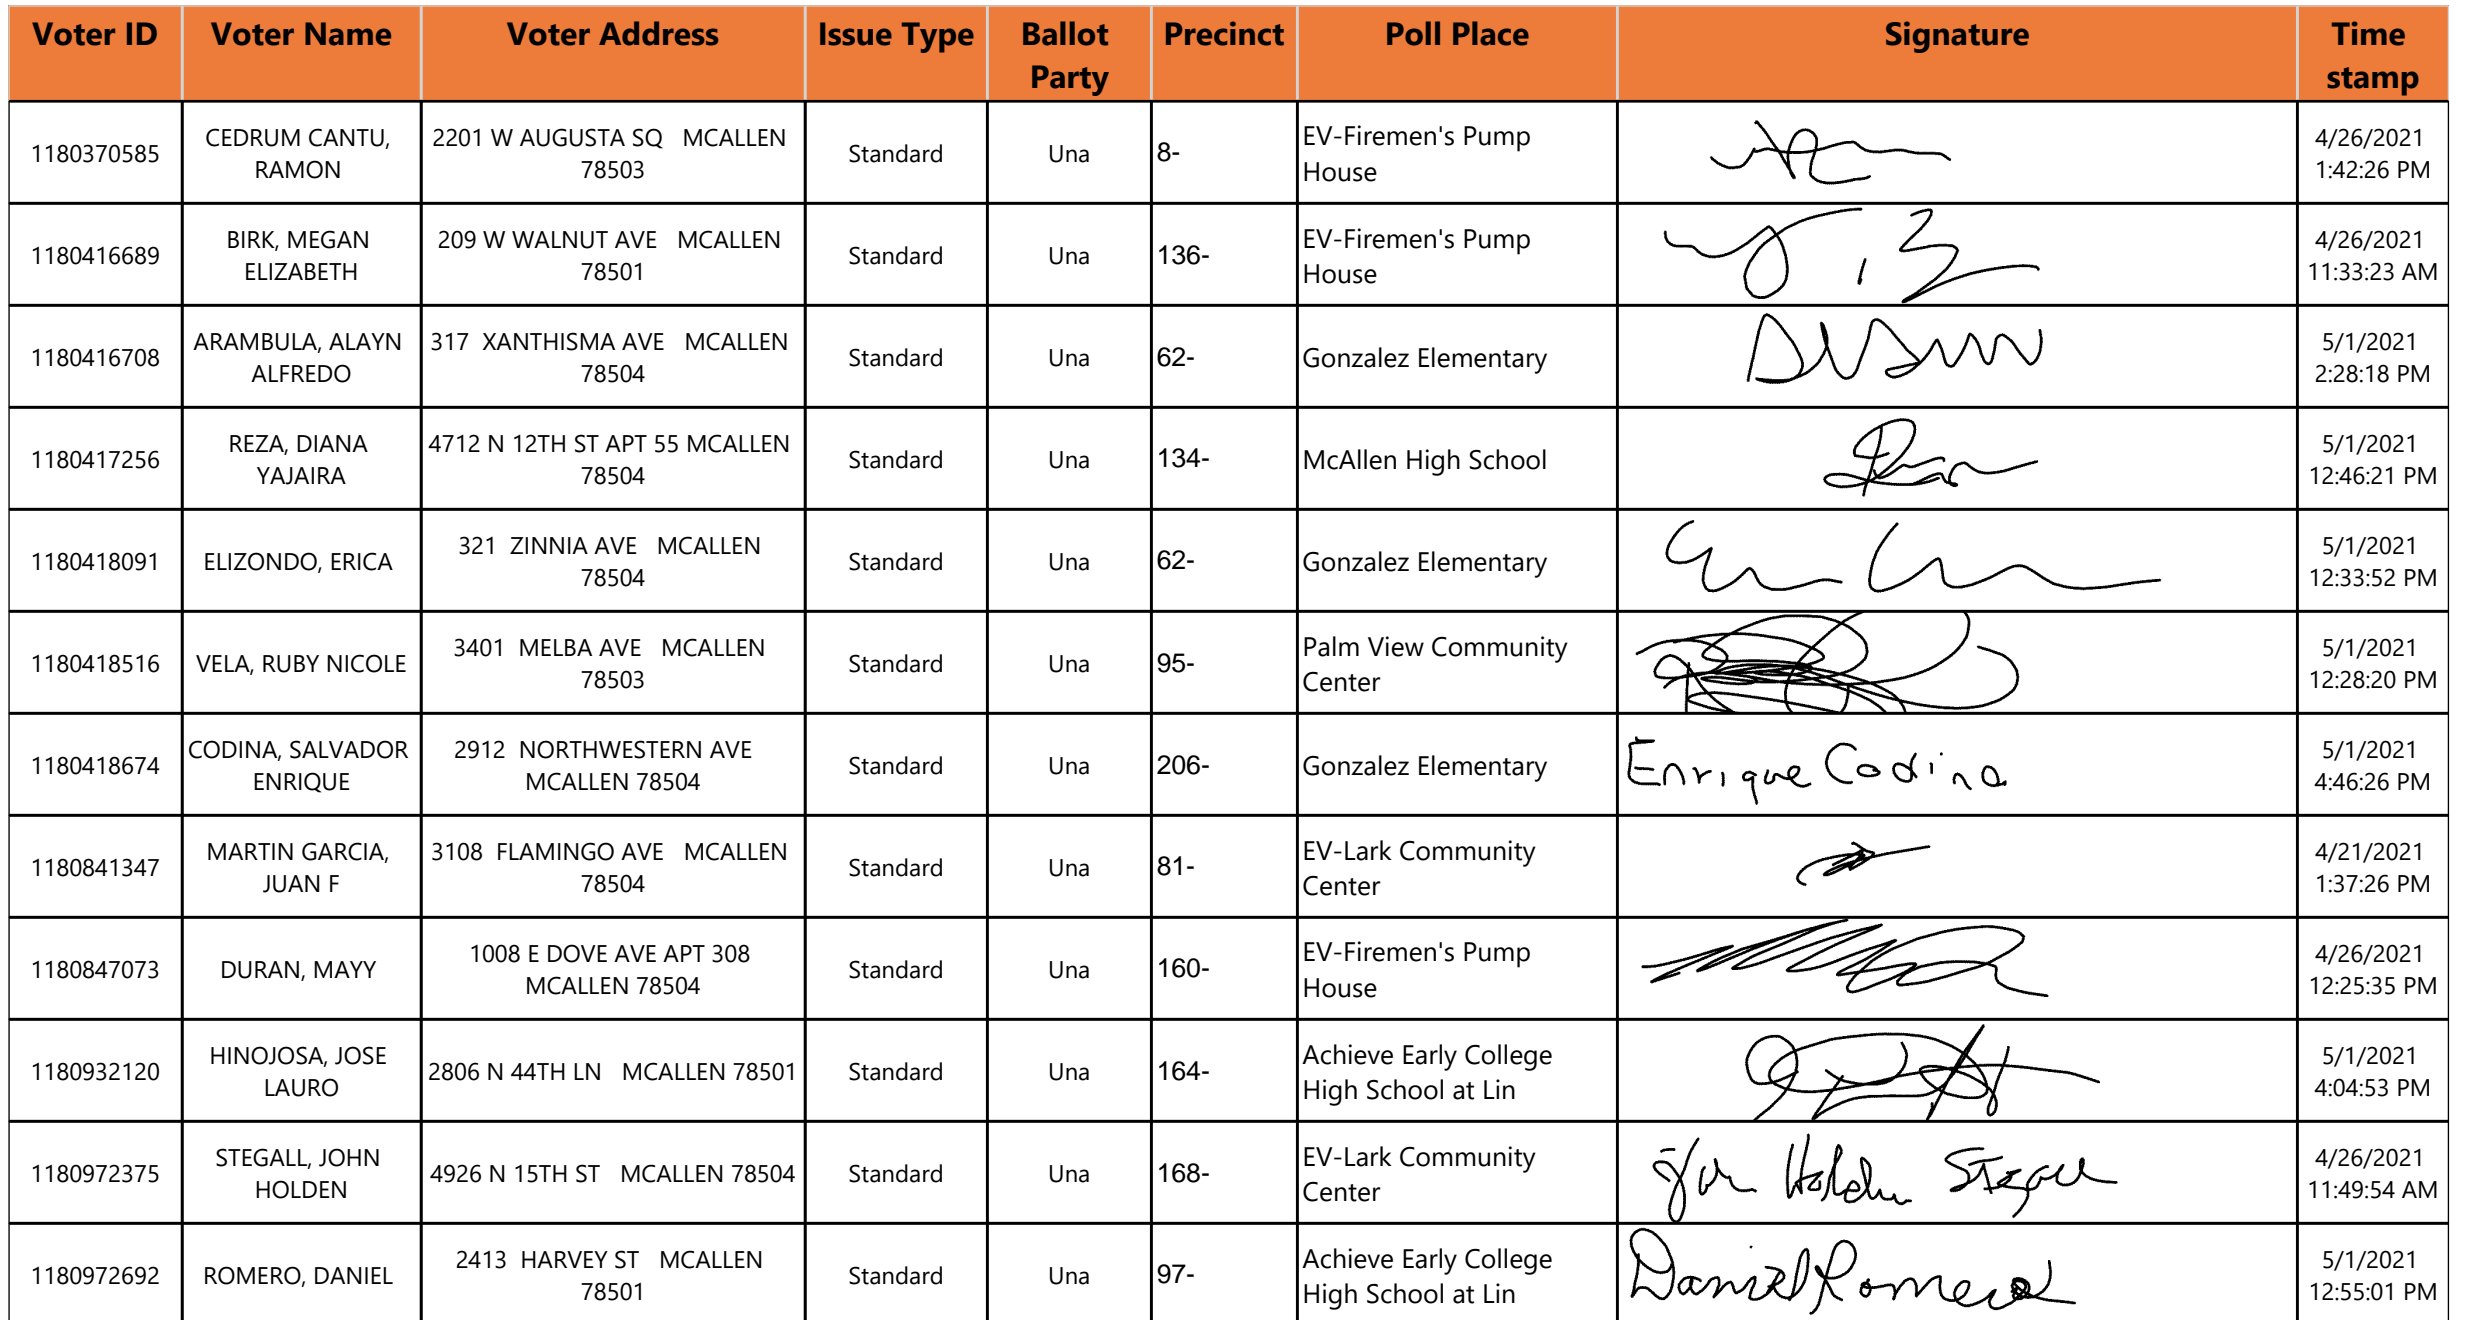 Voter ID Voter Name Voter Address Issue Type Ballot Party Precinct Poll Place Signature Time stamp
1180370585 CEDRUM CANTU, RAMON 2201 W AUGUSTA SQ MCALLEN 78503 Standard Una 8- EV-Firemen's Pump House 4/26/2021 1:42:26 PM
1180416689 BIRK, MEGAN ELIZABETH 209 W WALNUT AVE MCALLEN 78501 Standard Una 136- EV-Firemen's Pump House 4/26/2021 11:33:23 AM
1180416708 ARAMBULA, ALAYN ALFREDO 317 XANTHISMA AVE MCALLEN 78504 Standard Una 62- Gonzalez Elementary 5/1/2021 2:28:18 PM
1180417256 REZA, DIANA YAJAIRA 4712 N 12TH ST APT 55 MCALLEN 78504 Standard Una 134- McAllen High School 5/1/2021 12:46:21 PM
1180418091 ELIZONDO, ERICA 321 ZINNIA AVE MCALLEN 78504 Standard Una 62- Gonzalez Elementary 5/1/2021 12:33:52 PM
1180418516 VELA, RUBY NICOLE 3401 MELBA AVE MCALLEN 78503 Standard Una 95- Palm View Community Center 5/1/2021 12:28:20 PM
1180418674 CODINA, SALVADOR ENRIQUE 2912 NORTHWESTERN AVE MCALLEN 78504 Standard Una 206- Gonzalez Elementary Enrique Codina 5/1/2021 4:46:26 PM
1180841347 MARTIN GARCIA, JUAN F 3108 FLAMINGO AVE MCALLEN 78504 Standard Una 81- EV-Lark Community Center 4/21/2021 1:37:26 PM
1180847073 DURAN, MAYY 1008 E DOVE AVE APT 308 MCALLEN 78504 Standard Una 160- EV-Firemen's Pump House 4/26/2021 12:25:35 PM
1180932120 HINOJOSA, JOSE LAURO 2806 N 44TH LN MCALLEN 78501 Standard Una 164- Achieve Early College High School at Lin 5/1/2021 4:04:53 PM
1180972375 STEGALL, JOHN HOLDEN 4926 N 15TH ST MCALLEN 78504 Standard Una 168- EV-Lark Community Center John Holden Stegall 4/26/2021 11:49:54 AM
1180972692 ROMERO, DANIEL 2413 HARVEY ST MCALLEN 78501 Standard Una 97- Achieve Early College High School at Lin Daniel Romero 5/1/2021 12:55:01 PM